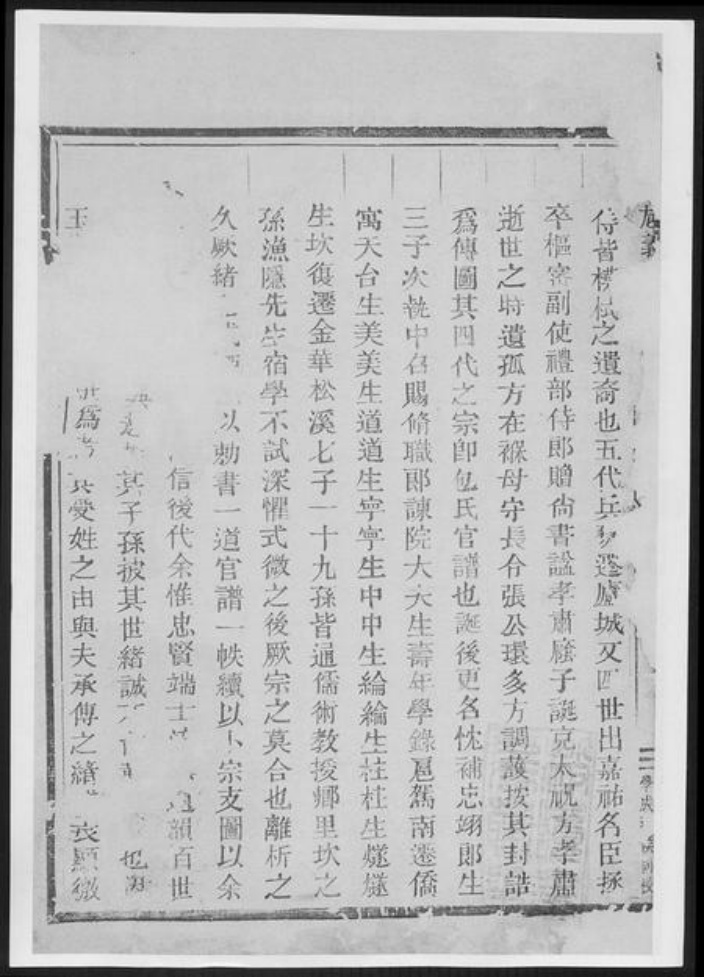 侍皆樸棫之遺裔也五代兵
遷廬城又四世出嘉祐名臣拯
卒樞密副使禮部侍郎贈尚書諡孝肅廕子誕克太祝方孝肅
逝世之時遺孤方在褓母守長令張公環多方調護按其封誥
爲傳圖其四代之宗卽包氏官譜也誕後更名忱補忠翊郎生
三子次執中召賜脩職郎諫院大夫生壽年學錄扈駕南遷僑
寓天台生美美生道道生寧寧生中中生綸綸生柱柱生燧燧
生坎復遷金華松溪七子一十九孫皆通儒術教授鄉里坎之
孫漁隱先生宿學不試深懼式微之後厥宗之莫合也離析之
久厥緒 以勅書一道官譜一帙續以卜宗支圖以余
信後代余惟忠賢端士 韻百世
其子孫披其世緒誠 也
爲 受姓之由與夫承傳之緒 表顯徽
玉